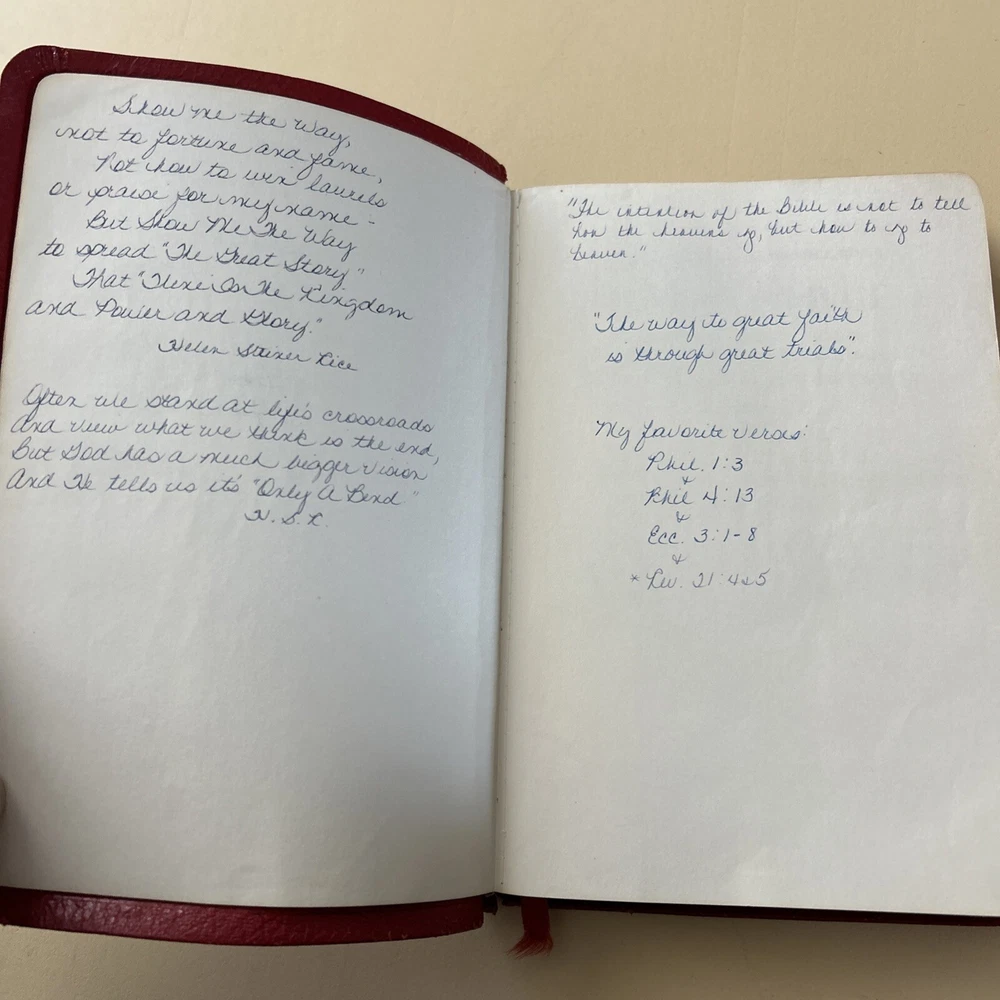 Show me the way,
not to fortune and fame,
Not how to win laurels
or praise for my name -
But Show Me The Way
to spread "The Great Story"
That "Thine Is The Kingdom
and Power and Glory."
Helen Steiner Rice
Often we stand at life's crossroads
And view what we think is the end,
But God has a much bigger vision
And He tells us it's "Only A Bend"
H. S. R.
"The intention of the Bible is not to tell
how the heavens go, but how to go to
heaven."
"The way to great faith
is through great trials".
My favorite verses:
Phil. 1:3
&
Phil 4:13
&
Ecc. 3:1-8
&
* Rev. 21:4&5